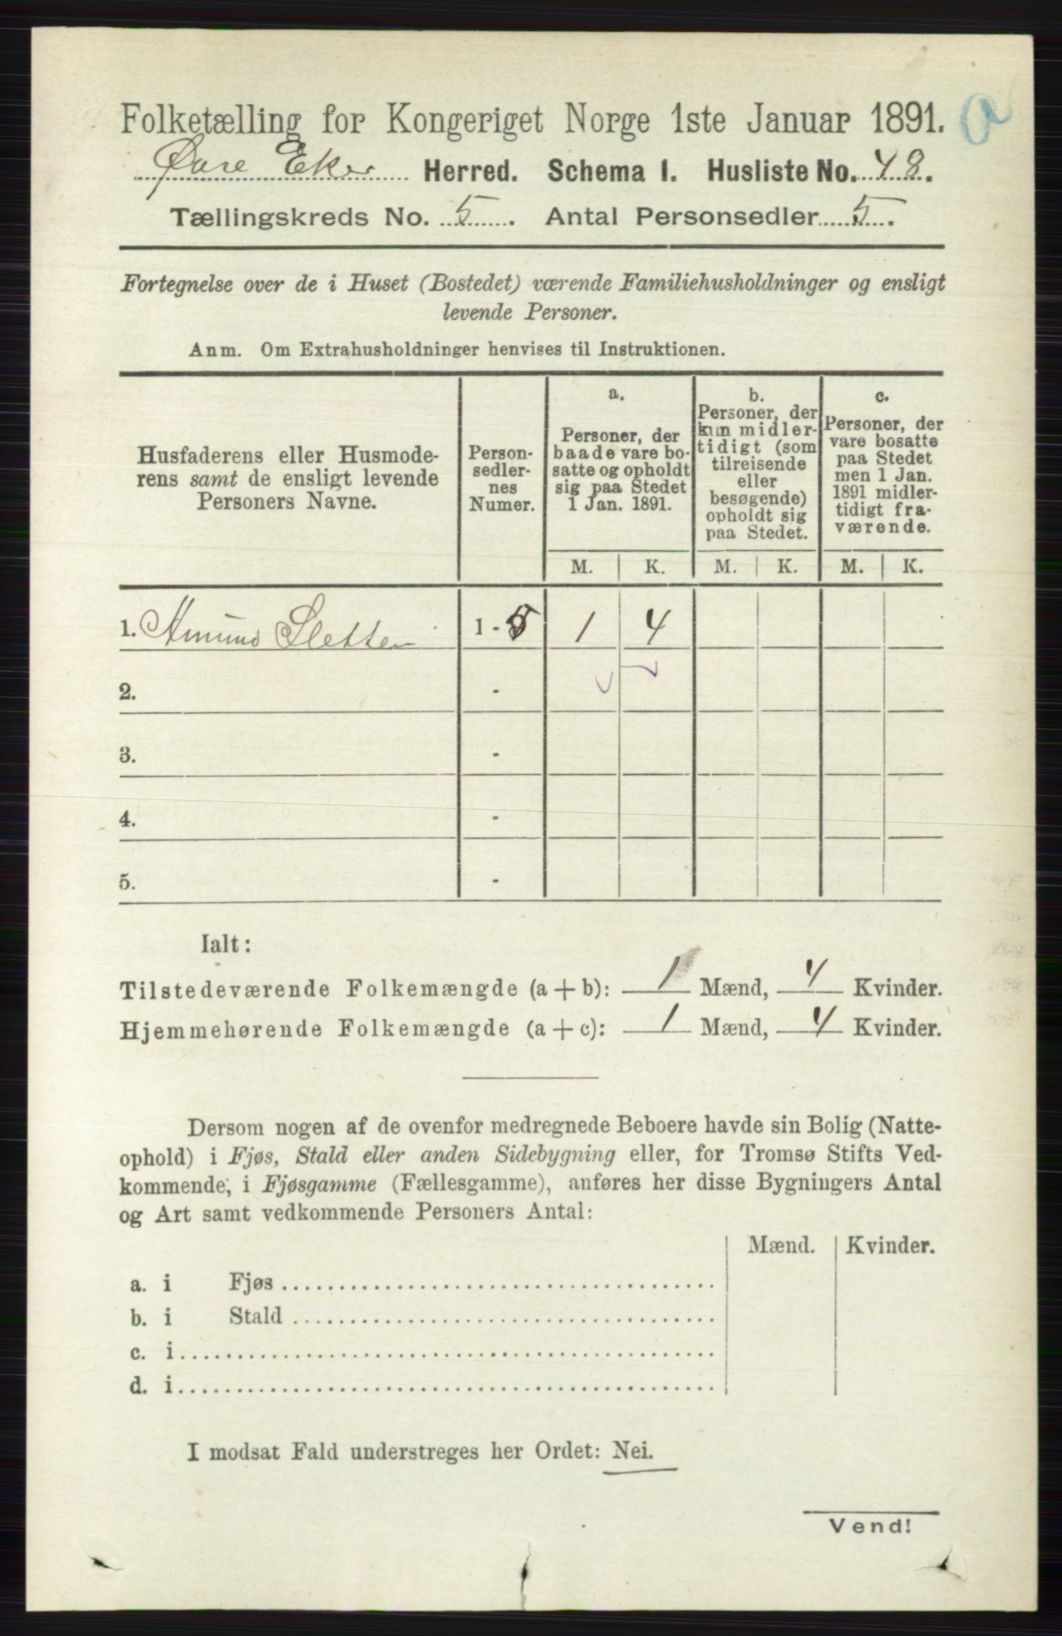 Folketælling for Kongeriget Norge 1ste Januar 1891.
Øvre Eker Herred. Schema I. Husliste No. 48.
Tællingskreds No. 5. Antal Personsedler 5.
Fortegnelse over de i Huset (Bostedet) værende Familiehusholdninger og ensligt
levende Personer.
Anm. Om Extrahusholdninger henvises til Instruktionen.
Husfaderens eller Husmode-
rens samt de ensligt levende
Personers Navne.
Person-
sedler-
nes
Numer.
a.
Personer, der
baade vare bo-
satte og opholdt
sig paa Stedet
1 Jan. 1891.
b.
Personer, der
kun midler-
tidigt (som
tilreisende
eller
besøgende)
opholdt sig
paa Stedet.
c.
Personer, der
vare bosatte
paa Stedet
men 1 Jan.
1891 midler-
tidigt fra-
værende.
M. K. M. K. M. K.
1. Amund Sletten 1 - 5 1 4
2. -
3. -
4. -
5. -
Ialt:
Tilstedeværende Folkemængde (a + b): 1 Mænd, 4 Kvinder.
Hjemmehørende Folkemængde (a + c): 1 Mænd, 4 Kvinder.
Dersom nogen af de ovenfor medregnede Beboere havde sin Bolig (Natte-
ophold) i Fjøs, Stald eller anden Sidebygning eller, for Tromsø Stifts Ved-
kommende, i Fjøsgamme (Fællesgamme), anføres her disse Bygningers Antal
og Art samt vedkommende Personers Antal:
Mænd. Kvinder.
a. i Fjøs
b. i Stald
c. i
d. i
I modsat Fald understreges her Ordet: Nei.
Vend!